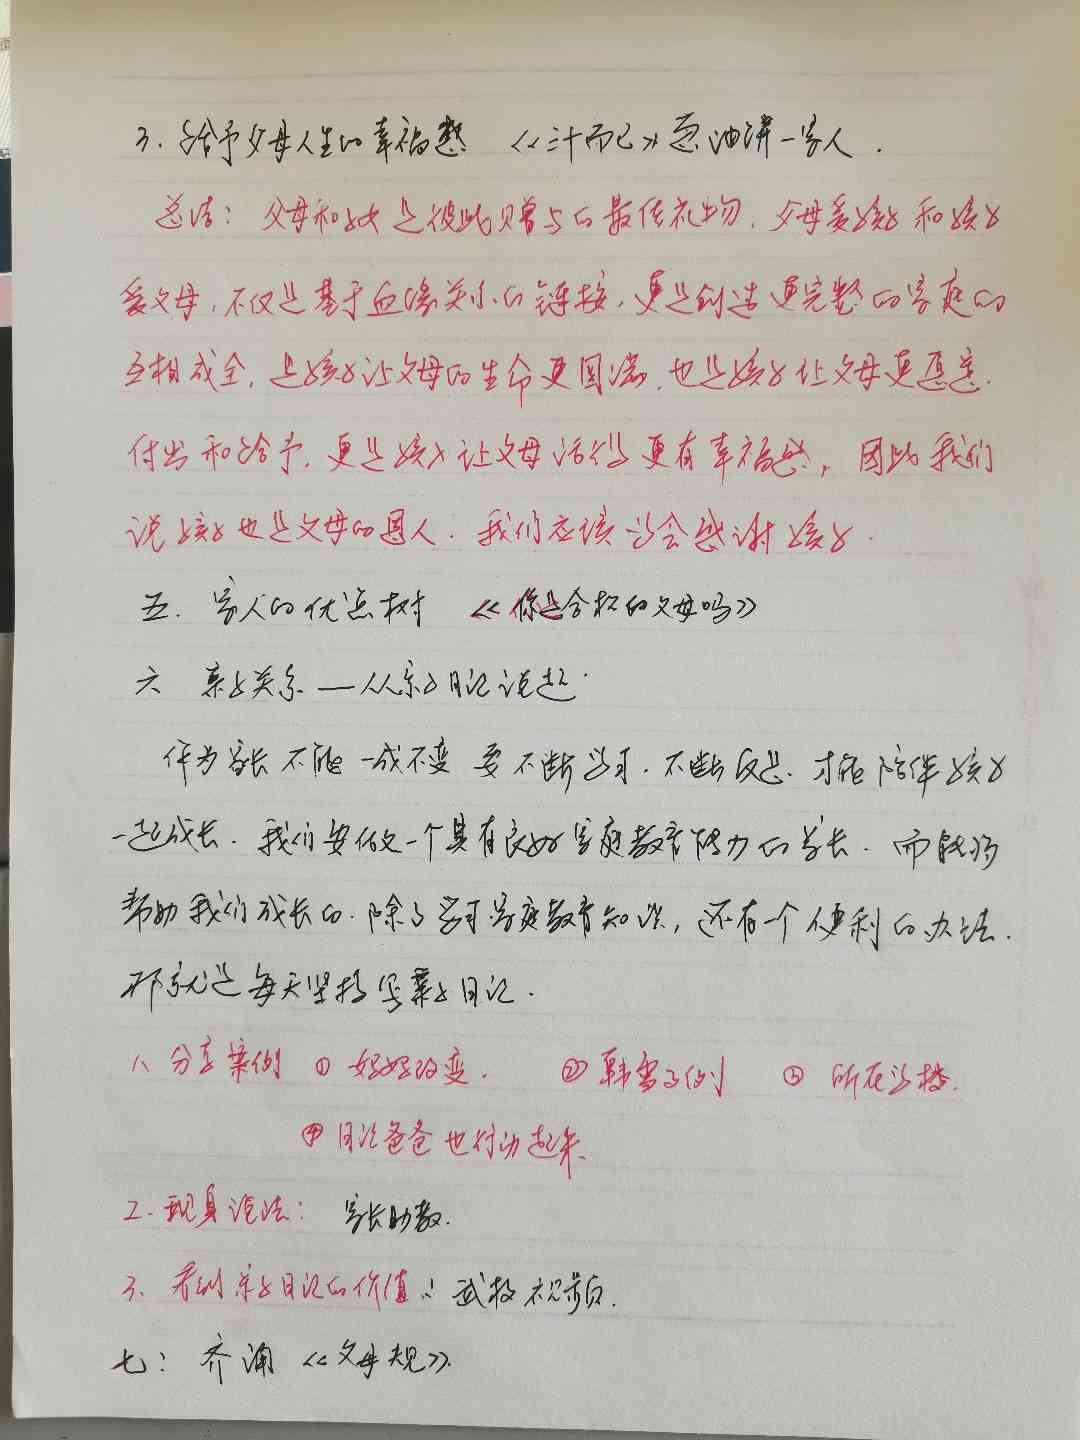 3、给予父母人生的幸福感 《三十而已》 油饼一家人.
总结：父母和孩子是彼此赠与的最佳礼物，父母爱孩子和孩子
爱父母，不仅是基于血缘关系的链接，更是创造更完整的家庭的
互相成全，是孩子让父母的生命更圆满，也是孩子让父母更愿意
付出和给予，更是孩子让父母活得更有幸福感，因此我们
说孩子也是父母的恩人.我们应该学会感谢孩子.
五.家人的优点树 《你是合格的父母吗》
六 亲子关系——从亲子日记说起.
作为家长不能一成不变 要不断学习.不断反思.才能陪伴孩子
一起成长.我们要做一个具有良好家庭教育能力的家长.而能够
帮助我们成长的.除了学习家庭教育知识，还有一个便利的办法.
那就是每天坚持写亲子日记.
1、分享案例 ① 妈妈改变. ② 韩雪的例 ③ 所在学校.
④ 日记爸爸也行动起来.
2.现身说法：家长助教.
3、看到亲子日记的价值：武校视频.
七：齐诵《父母规》.